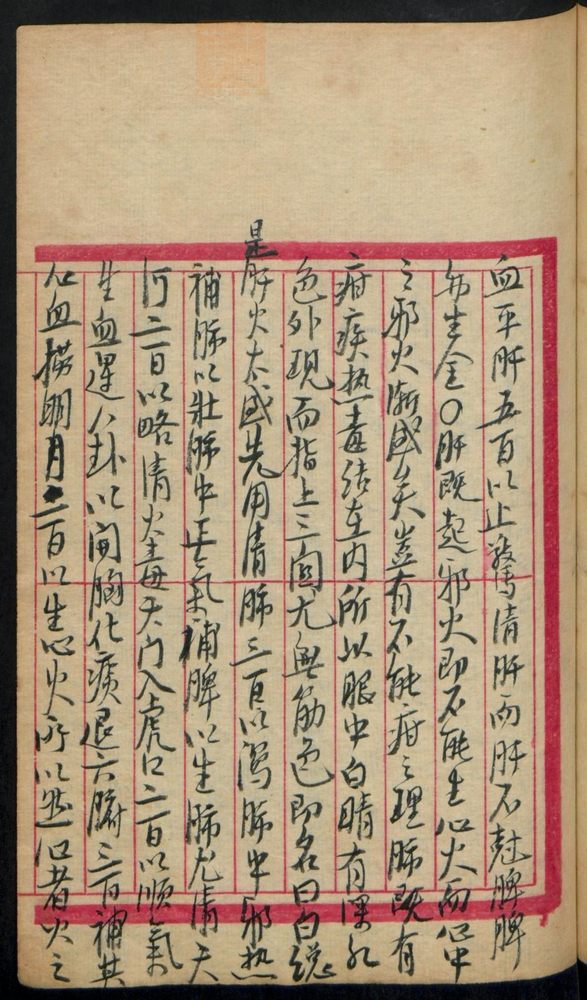 血平肝五百以止驚清肝而肝不尅脾脾
安生金○肝既起邪火即不能生心火而心中
之邪火漸盛矣豈有不能疳之理肺既有
疳疾热毒结在内所以眼中白睛有深红
色外現而指上三関尤無筋色即名曰白
是肝火太盛先用清肺三百以瀉肺中邪热
補肺以壮肺中正氣補脾以生肺尤清天
河二百以略清火主毎天门入虎口二百以順氣
生血運八卦以開胸化痰退六腑三百補其
心血撈明月二百以生心火所以然心者火之